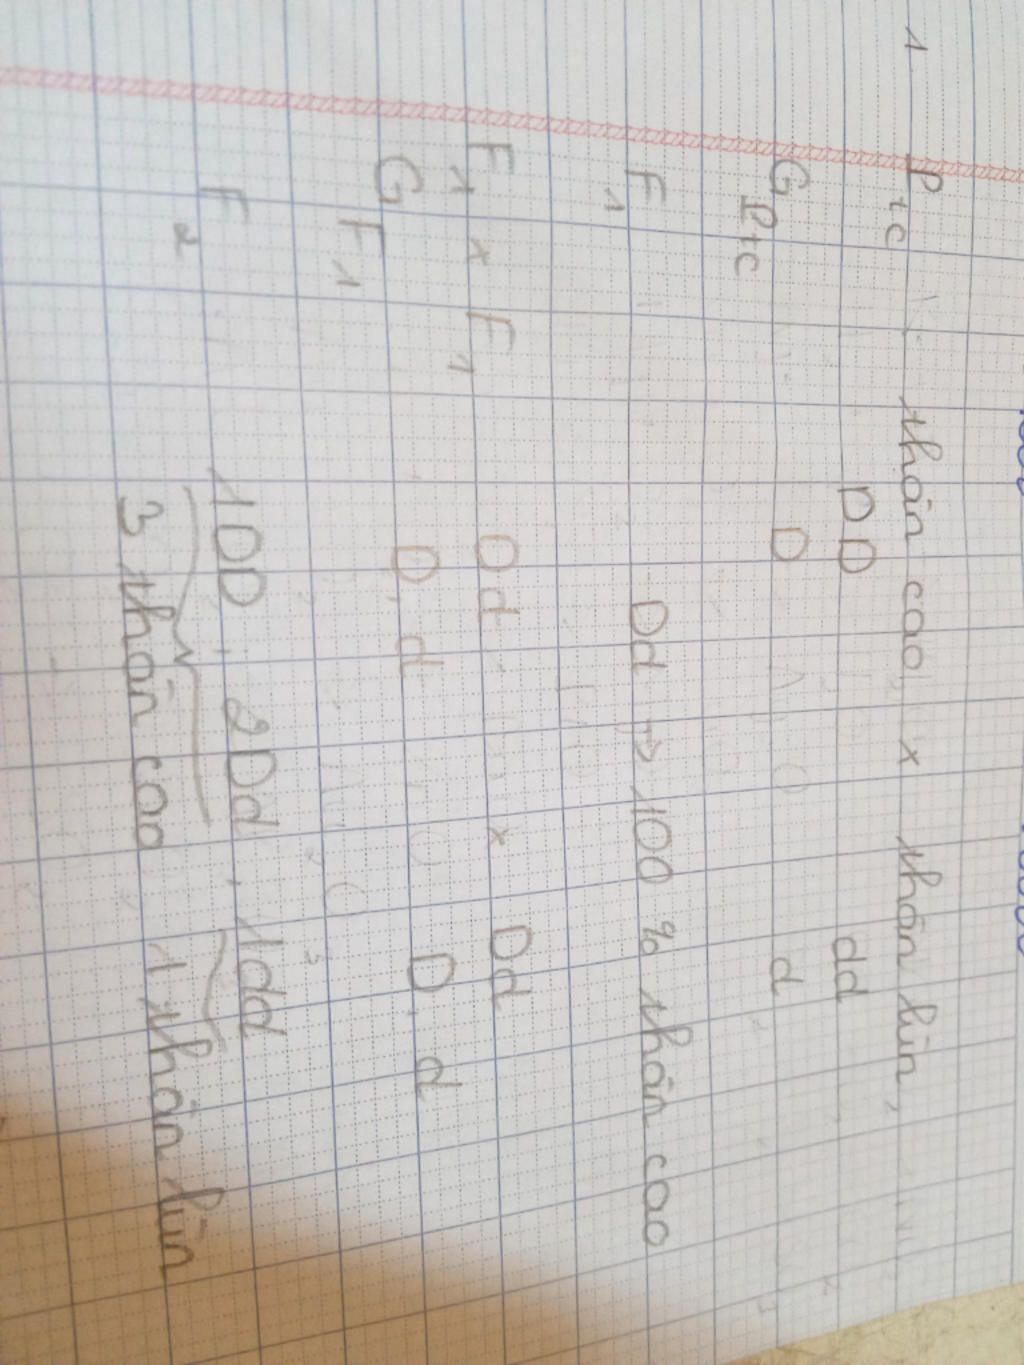 1. P t/c thân cao x thân lùn
DD dd
G Pt/c D d
F1 Dd → 100% thân cao
F1 x F1 Dd x Dd
G F1 D, d D, d
F2 1DD, 2Dd, 1dd
3 thân cao 1 thân lùn